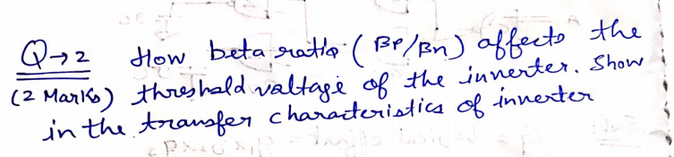 Q→2 How beta ratio (βP/βn) affects the
(2 Marks) threshold valtage of the inverter. Show
in the transfer characteristics of inverter